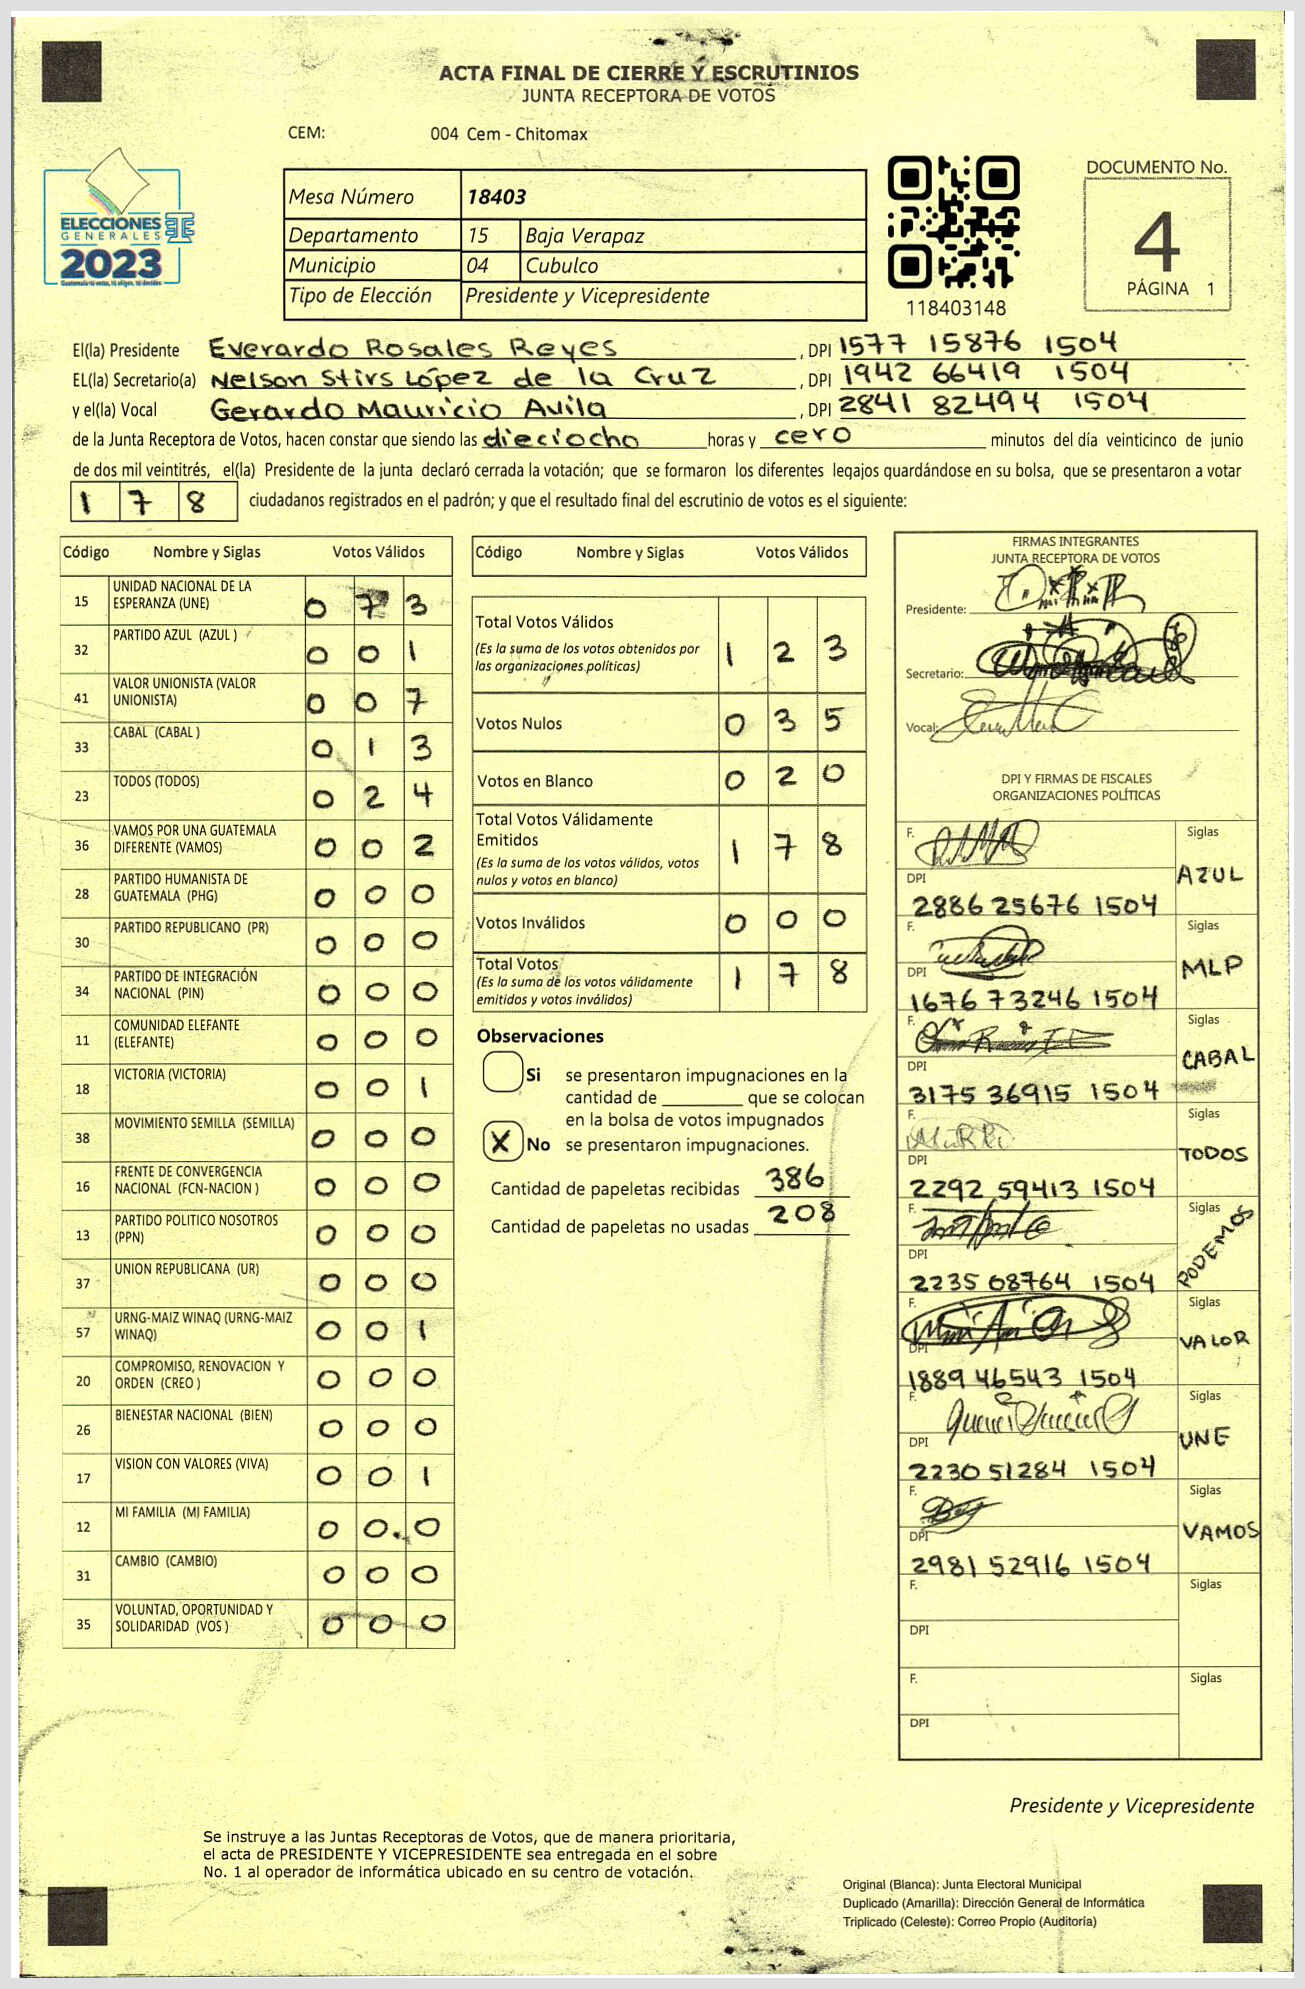 ACTA FINAL DE CIERRE Y ESCRUTINIOS
JUNTA RECEPTORA DE VOTOS
CEM: 004 Cem - Chitomax
ELECCIONES
GENERALES
2023
Guatemala tú votas, tú eliges, tú decides
Mesa Número 18403
Departamento 15 Baja Verapaz
Municipio 04 Cubulco
Tipo de Elección Presidente y Vicepresidente
118403148
DOCUMENTO No.
4
PÁGINA 1
El(la) Presidente Everardo Rosales Reyes , DPI 1577 15876 1504
EL(la) Secretario(a) Nelson Stivs López de la Cruz , DPI 1942 66419 1504
y el(la) Vocal Gerardo Mauricio Avila , DPI 2841 82494 1504
de la Junta Receptora de Votos, hacen constar que siendo las dieciocho horas y cero minutos del día veinticinco de junio
de dos mil veintitrés, el(la) Presidente de la junta declaró cerrada la votación; que se formaron los diferentes legajos guardándose en su bolsa, que se presentaron a votar
1 7 8 ciudadanos registrados en el padrón; y que el resultado final del escrutinio de votos es el siguiente:
Código Nombre y Siglas Votos Válidos
15 UNIDAD NACIONAL DE LA ESPERANZA (UNE) 0 7 3
32 PARTIDO AZUL (AZUL ) 0 0 1
41 VALOR UNIONISTA (VALOR UNIONISTA) 0 0 7
33 CABAL (CABAL ) 0 1 3
23 TODOS (TODOS) 0 2 4
36 VAMOS POR UNA GUATEMALA DIFERENTE (VAMOS) 0 0 2
28 PARTIDO HUMANISTA DE GUATEMALA (PHG) 0 0 0
30 PARTIDO REPUBLICANO (PR) 0 0 0
34 PARTIDO DE INTEGRACIÓN NACIONAL (PIN) 0 0 0
11 COMUNIDAD ELEFANTE (ELEFANTE) 0 0 0
18 VICTORIA (VICTORIA) 0 0 1
38 MOVIMIENTO SEMILLA (SEMILLA) 0 0 0
16 FRENTE DE CONVERGENCIA NACIONAL (FCN-NACION ) 0 0 0
13 PARTIDO POLITICO NOSOTROS (PPN) 0 0 0
37 UNION REPUBLICANA (UR) 0 0 0
57 URNG-MAIZ WINAQ (URNG-MAIZ WINAQ) 0 0 1
20 COMPROMISO, RENOVACION Y ORDEN (CREO ) 0 0 0
26 BIENESTAR NACIONAL (BIEN) 0 0 0
17 VISION CON VALORES (VIVA) 0 0 1
12 MI FAMILIA (MI FAMILIA) 0 0 0
31 CAMBIO (CAMBIO) 0 0 0
35 VOLUNTAD, OPORTUNIDAD Y SOLIDARIDAD (VOS ) 0 0 0
Código Nombre y Siglas Votos Válidos
Total Votos Válidos 1 2 3
(Es la suma de los votos obtenidos por
las organizaciones políticas)
Votos Nulos 0 3 5
Votos en Blanco 0 2 0
Total Votos Válidamente
Emitidos 1 7 8
(Es la suma de los votos válidos, votos
nulos y votos en blanco)
Votos Inválidos 0 0 0
Total Votos 1 7 8
(Es la suma de los votos válidamente
emitidos y votos inválidos)
Observaciones
Si se presentaron impugnaciones en la
cantidad de ________ que se colocan
en la bolsa de votos impugnados
X No se presentaron impugnaciones.
Cantidad de papeletas recibidas 386
Cantidad de papeletas no usadas 208
FIRMAS INTEGRANTES
JUNTA RECEPTORA DE VOTOS
Presidente:
Secretario:
Vocal:
DPI Y FIRMAS DE FISCALES
ORGANIZACIONES POLÍTICAS
F. Siglas
DPI AZUL
2886 25676 1504
F. Siglas
DPI MLP
1676 73246 1504
F. Siglas
DPI CABAL
3175 36915 1504
F. Siglas
DPI TODOS
2292 59413 1504
F. Siglas
DPI PODEMOS
2235 08764 1504
F. Siglas
DPI VALOR
1889 46543 1504
F. Siglas
DPI UNE
2230 51284 1504
F. Siglas
DPI VAMOS
2981 52916 1504
F. Siglas
DPI
F. Siglas
DPI
Presidente y Vicepresidente
Se instruye a las Juntas Receptoras de Votos, que de manera prioritaria,
el acta de PRESIDENTE Y VICEPRESIDENTE sea entregada en el sobre
No. 1 al operador de informática ubicado en su centro de votación.
Original (Blanca): Junta Electoral Municipal
Duplicado (Amarilla): Dirección General de Informática
Triplicado (Celeste): Correo Propio (Auditoría)